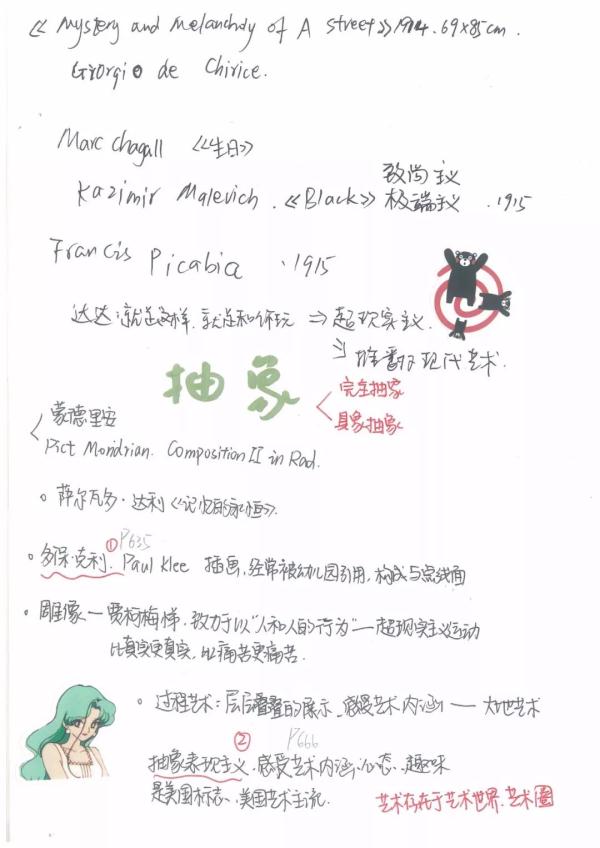 《Mystery and Melancholy of A street》1914. 69×85cm.
Giorgio de Chirice.
Marc chagall 《生日》
致尚主义
Kazimir Malevich. 《Black》 极端主义 . 1915
Francis Picabia . 1915
达达:就是这样,就是和你玩 ⇒ 超现实主义.
⇒ 推翻了现代艺术.
抽象
完全抽象
具象抽象
蒙德里安
Pict Mondrian. Composition II in Rad.
萨尔瓦多·达利《记忆的永恒》.
① P635
多保·克利. Paul Klee 插画,经常被幼儿园引用,构成与点线面
雕像—贾柯梅悌,致力于以"人和人的行为"—超现实主义运动
比真实更真实,比痛苦更痛苦.
过程艺术:层层叠叠的展示、感受艺术内涵——大地艺术
② P666
抽象表现主义.感受艺术内涵,心态、趣味
是美国标志、美国艺术主流.
艺术存在于艺术世界.艺术圈